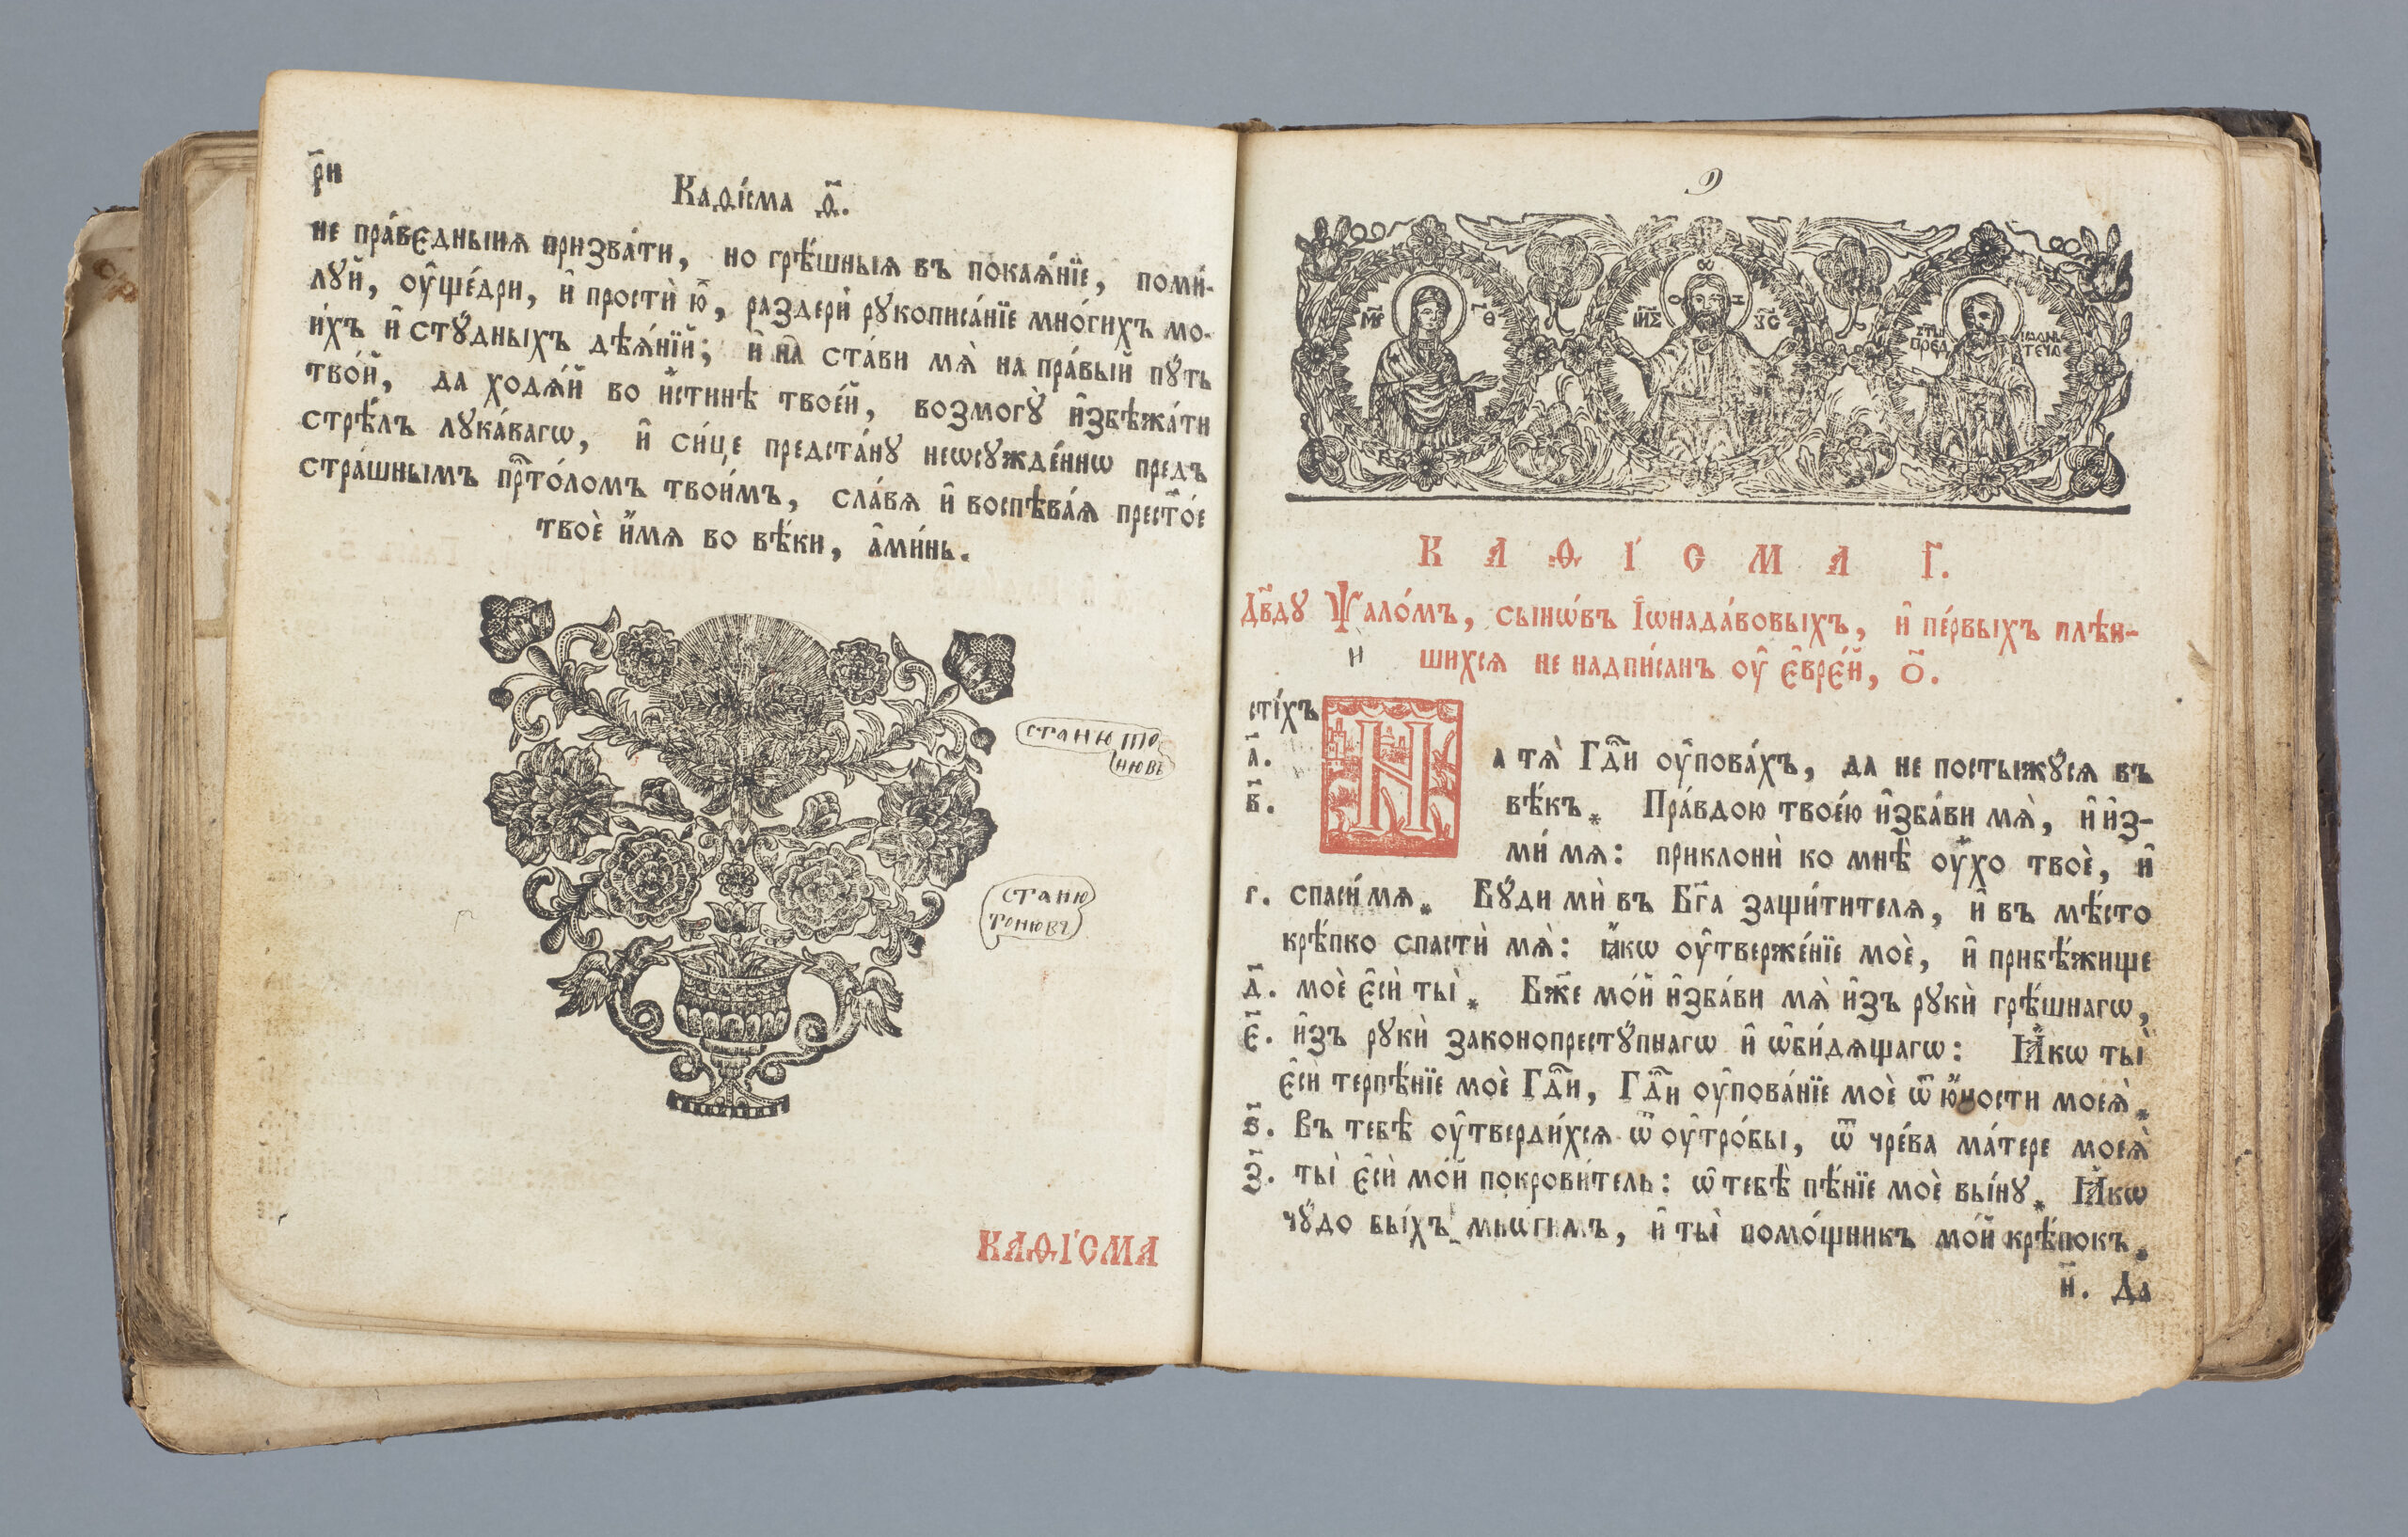 р҃и
Каѳі́сма ѳ҃.
не пра́вєдныия призва́ти, но грѣ́шныя въ покая́нїе, поми́-
луй, оу҆ще́дри, и҆ простѝ ю҆̀, раздерѝ рукописа́нїе мно́гихъ мо-
и́хъ и҆ сту́дныхъ дѣя́нїй; и҆ на ста́ви мѧ̀ на пра́вый пу́ть
тво́й, да ходѧ́й во и҆́стинѣ твое́й, возмогу̀ и҆збѣжа́ти
стрѣ́лъ лука́вагѡ, и҆ си́це предста́ну неѡсужде́ннѡ предъ
стра́шнымъ прⷭ҇то́ломъ твои́мъ, сла́вѧ и҆ воспѣва́ѧ прест҃о́е
твоѐ и҆́мѧ во вѣ́ки, а҆ми́нь.
станю то
нювъ
станю
тонювъ
КАѲІ́СМА
9
М҃Р Ѳ҃
Ѡ О Н
І҃ИС Х҃С
СТЫ ІѠАНЪ
ПРЕД ТЕЧА
К А Ѳ І́ С М А І҃.
Дв҃ду Ѱало́мъ, сынѡ́въ І҆ѡнада́вовыхъ, и҆ пе́рвыхъ плѣн-
и
шихсѧ не надпи́санъ оу҆ є҆вре́й, о҃.
сті́хъ
а҃. На тѧ̀ Гдⷭ҇и оу҆пова́хъ, да не постыжу́сѧ въ
в҃. вѣ́къ* Пра́вдою твое́ю и҆зба́ви мѧ̀, и҆ и҆з-
ми́ мѧ: приклонѝ ко мнѣ̀ оу҆́хо твоѐ, и҆
г. спаси́ мѧ* Бу́ди мѝ въ Бг҃а защи́тителѧ, и҆ въ мѣ́сто
крѣ́пко спастѝ мѧ̀: ꙗ҆́кѡ оу҆тверже́нїе моѐ, и҆ прибѣ́жище
д҃. моѐ є҆сѝ ты̀* Бж҃е мо́й и҆зба́ви мѧ̀ и҆зъ рукѝ грѣ́шнагѡ,
є҃. и҆зъ рукѝ законопресту́пнагѡ и҆ ѡ҆би́дѧщагѡ: Ꙗ҆́кѡ ты̀
є҆сѝ терпѣ́нїе моѐ Гдⷭ҇и, Гдⷭ҇и оу҆пова́нїе моѐ ѿ ю҆́ности моеѧ̀*
ѕ҃. Въ тебѣ̀ оу҆тверди́хсѧ ѿ оу҆тро́бы, ѿ чре́ва ма́тере моеѧ̀
з҃. ты̀ є҆сѝ мо́й покрови́тель: ѡ҆ тебѣ̀ пѣ́нїе моѐ вы́ну* Ꙗ҆́кѡ
чу́до бы́хъ мнѡ́гимъ, и҆ ты̀ помо́щникъ мо́й крѣ́покъ*
и҃. Да